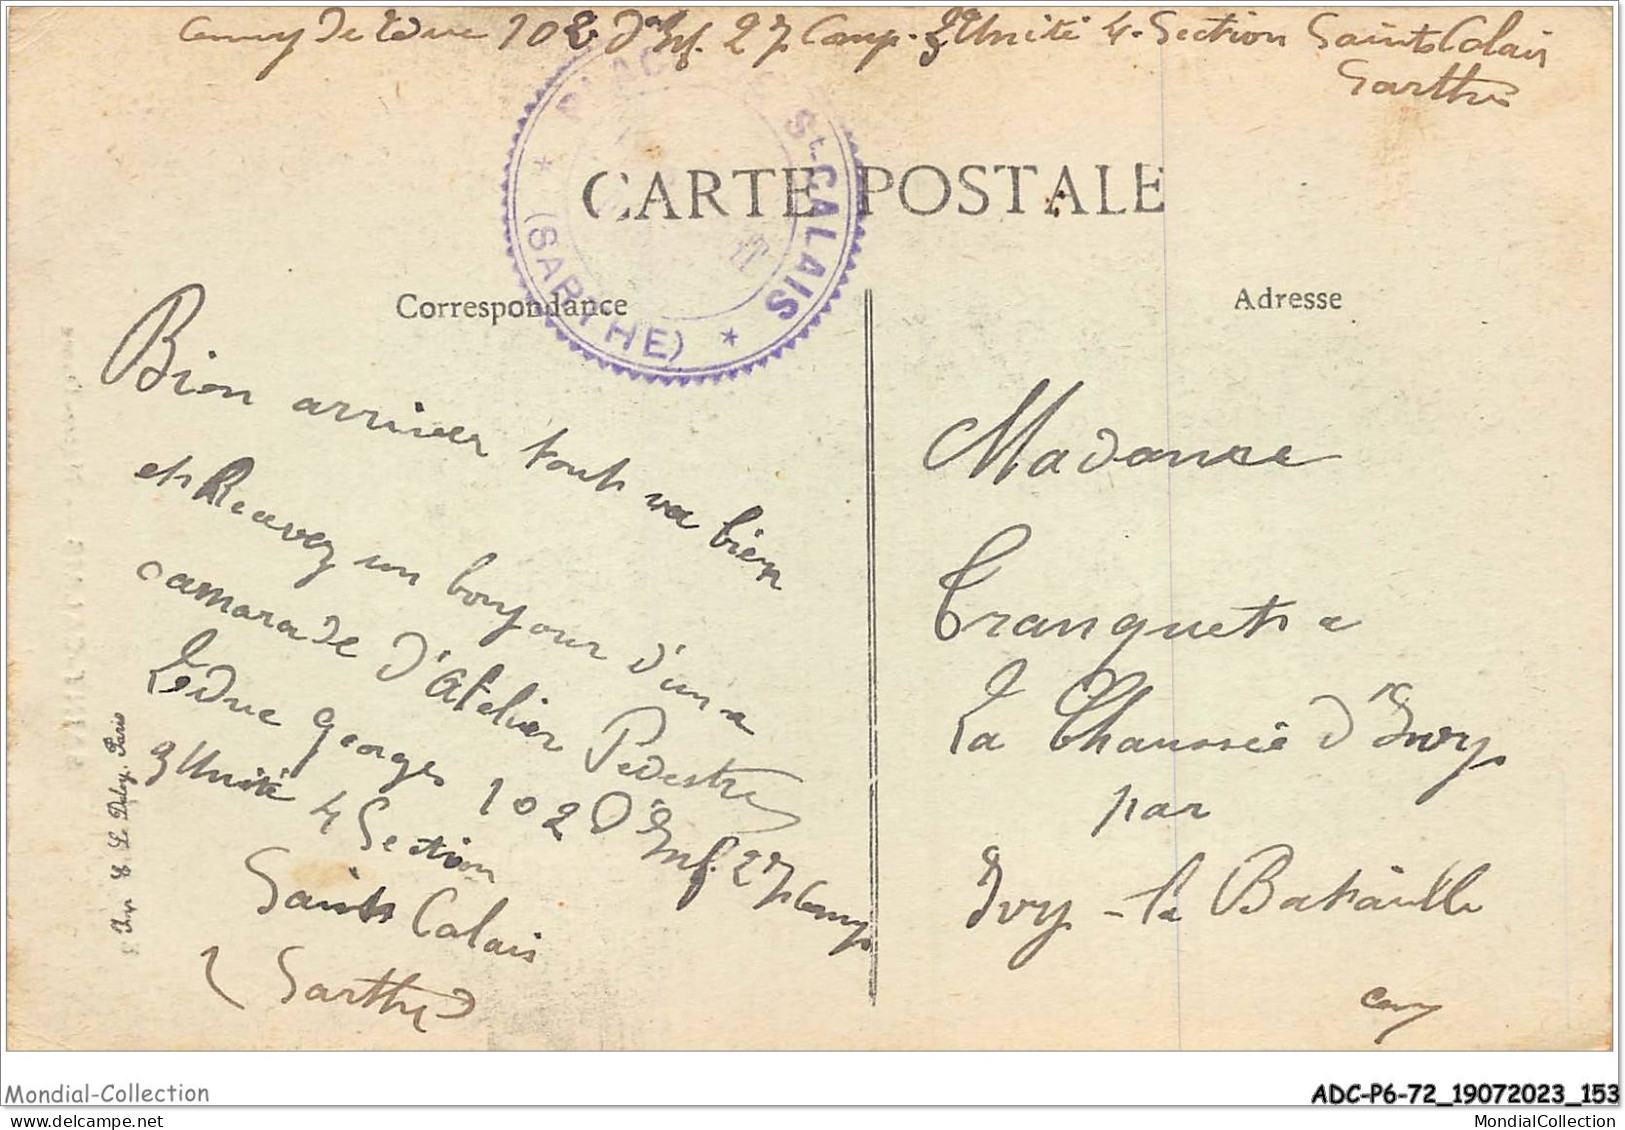 Leduc 102 d'Inf. 27 Comp. 3 Unité 4. Section Saint Calais
Sarthe
PLACE DE St-CALAIS
(SARTHE)
CARTE POSTALE
Correspondance
Adresse
Bien arriver tout va bien
et Recevez un bonjour d'une
camarade d'Atelier
Leduc Georges 102 d'Inf. 27 Comp
3 Unité 4 Section
Saint Calais
(Sarthe)
Madame
Tranquet
La Chaussée d'Ivry
par
Ivry-la Bataille
Imp. E. Le Deley, Paris
Mondial-Collection
ADC-P6-72_19072023_153
MondialCollection
MondialCollection